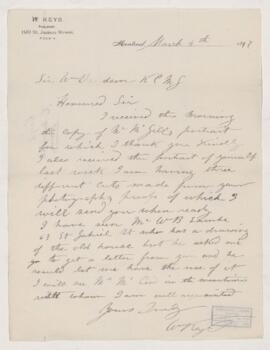 W KEYS
1520 St. James Street,
Montreal, March 8th 189
Sir Wm Dawson K C M G
Honoured Sir
I received this morning
the copy of Mr McGill's portrait
for which I thank you kindly
I also received the portrait of yourself
last week I am having three
different cuts made from your
photographs proofs of which I
will send you when ready
I have seen Mr W B
St Gabriel St who has a drawing
of the old house but he asked me
to get a letter from you and he
let me have the use of it
I will see Mr Mc in the
with whom I am well acquainted
Yours Truly
W Keys